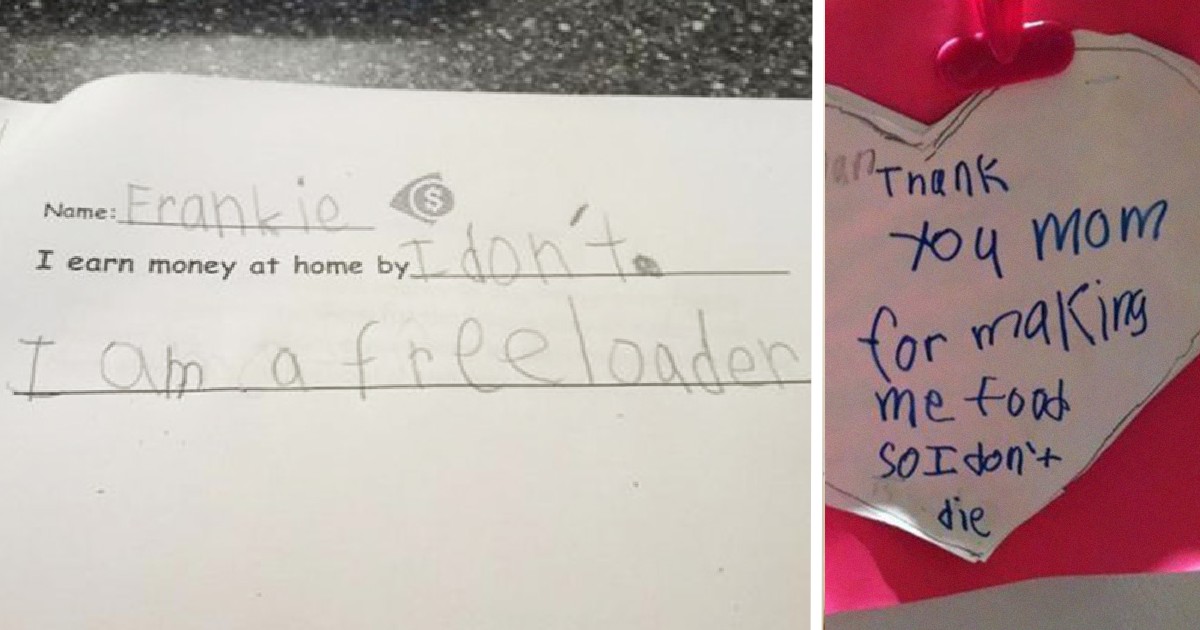 Name: Frankie
I earn money at home by I don't.
I am a freeloader
Thank
you mom
for making
me food
so I don't
die